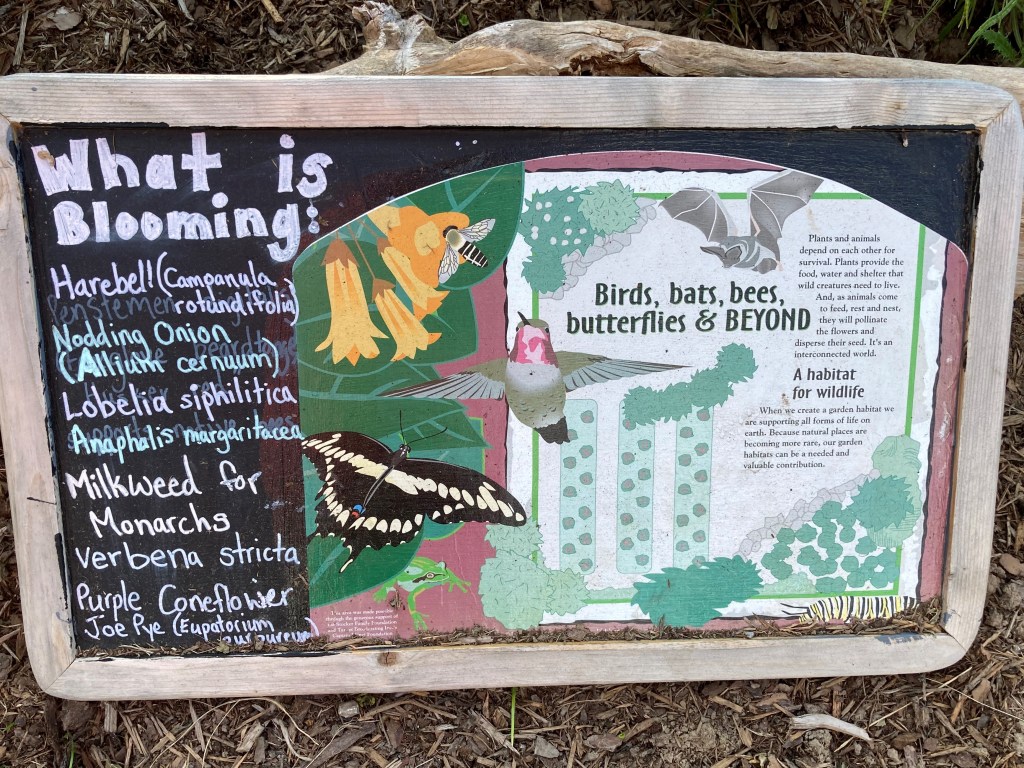 What is
Blooming:
Harebell! (Campanula
rotundifolia)
Nodding Onion
(Allium cernuum)
Lobelia siphilitica
Anaphalis margaritacea
Milkweed for
Monarchs
Verbena stricta
Purple Coneflower
Joe Pye (Eupatorium
purpureum)
Birds, bats, bees,
butterflies & BEYOND
Plants and animals
depend on each other for
survival. Plants provide the
food, water and shelter that
wild creatures need to live.
And, as animals come
to feed, rest and nest,
they will pollinate
the flowers and
disperse their seed. It's an
interconnected world.
A habitat
for wildlife
When we create a garden habitat we
are supporting all forms of life on
earth. Because natural places are
becoming more rare, our garden
habitats can be a needed and
valuable contribution.
This area was made possible
through the generous support of
Family Foundation
Foundation